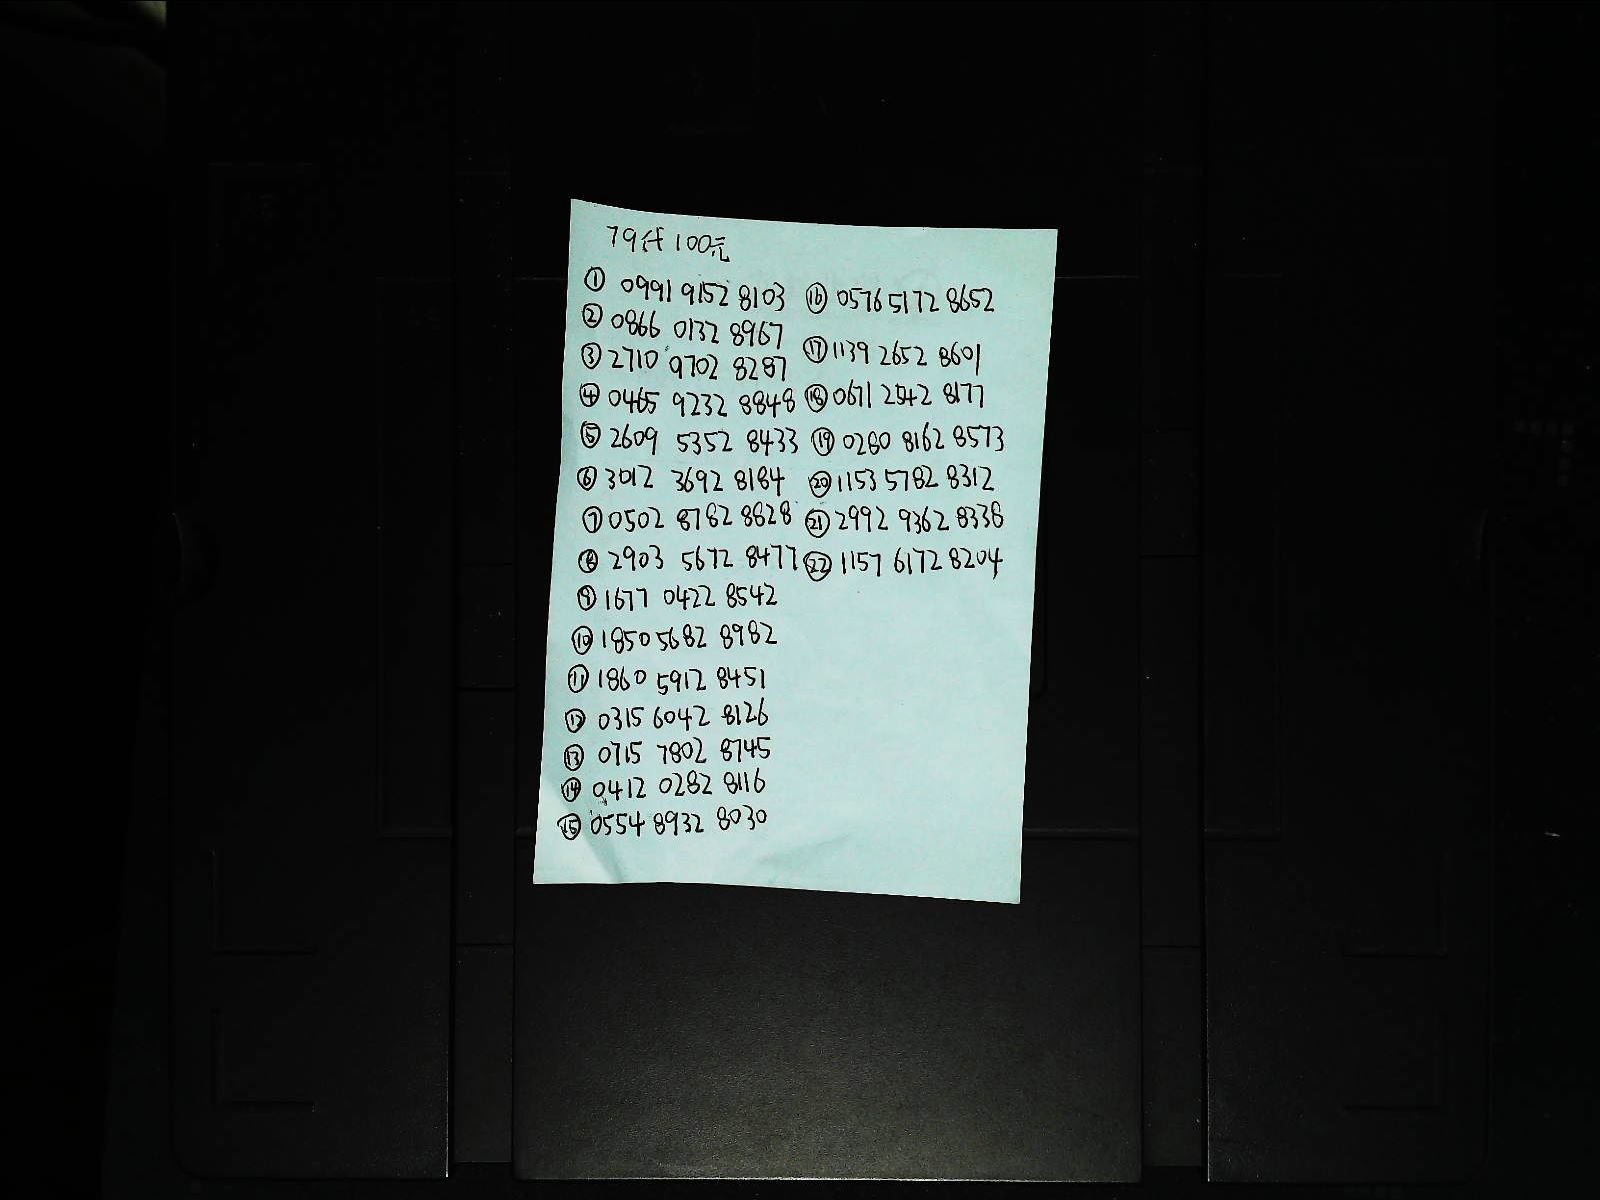 79付100元
① 0991 9152 8103
② 0866 0132 8967
③ 2710 9702 8287
④ 0465 9232 8848
⑤ 2609 5352 8433
⑥ 3012 3692 8184
⑦ 0502 8782 8828
⑧ 2903 5672 8477
⑨ 1677 0422 8542
⑩ 1850 5682 8982
⑪ 1860 5912 8451
⑫ 0315 6042 8126
⑬ 0715 7802 8745
⑭ 0412 0282 8116
⑮ 0554 8932 8030
⑯ 0576 5172 8652
⑰ 1139 2652 8601
⑱ 0671 2542 8177
⑲ 0280 8162 8573
⑳ 1153 5782 8312
㉑ 2992 9362 8338
㉒ 1157 6172 8204